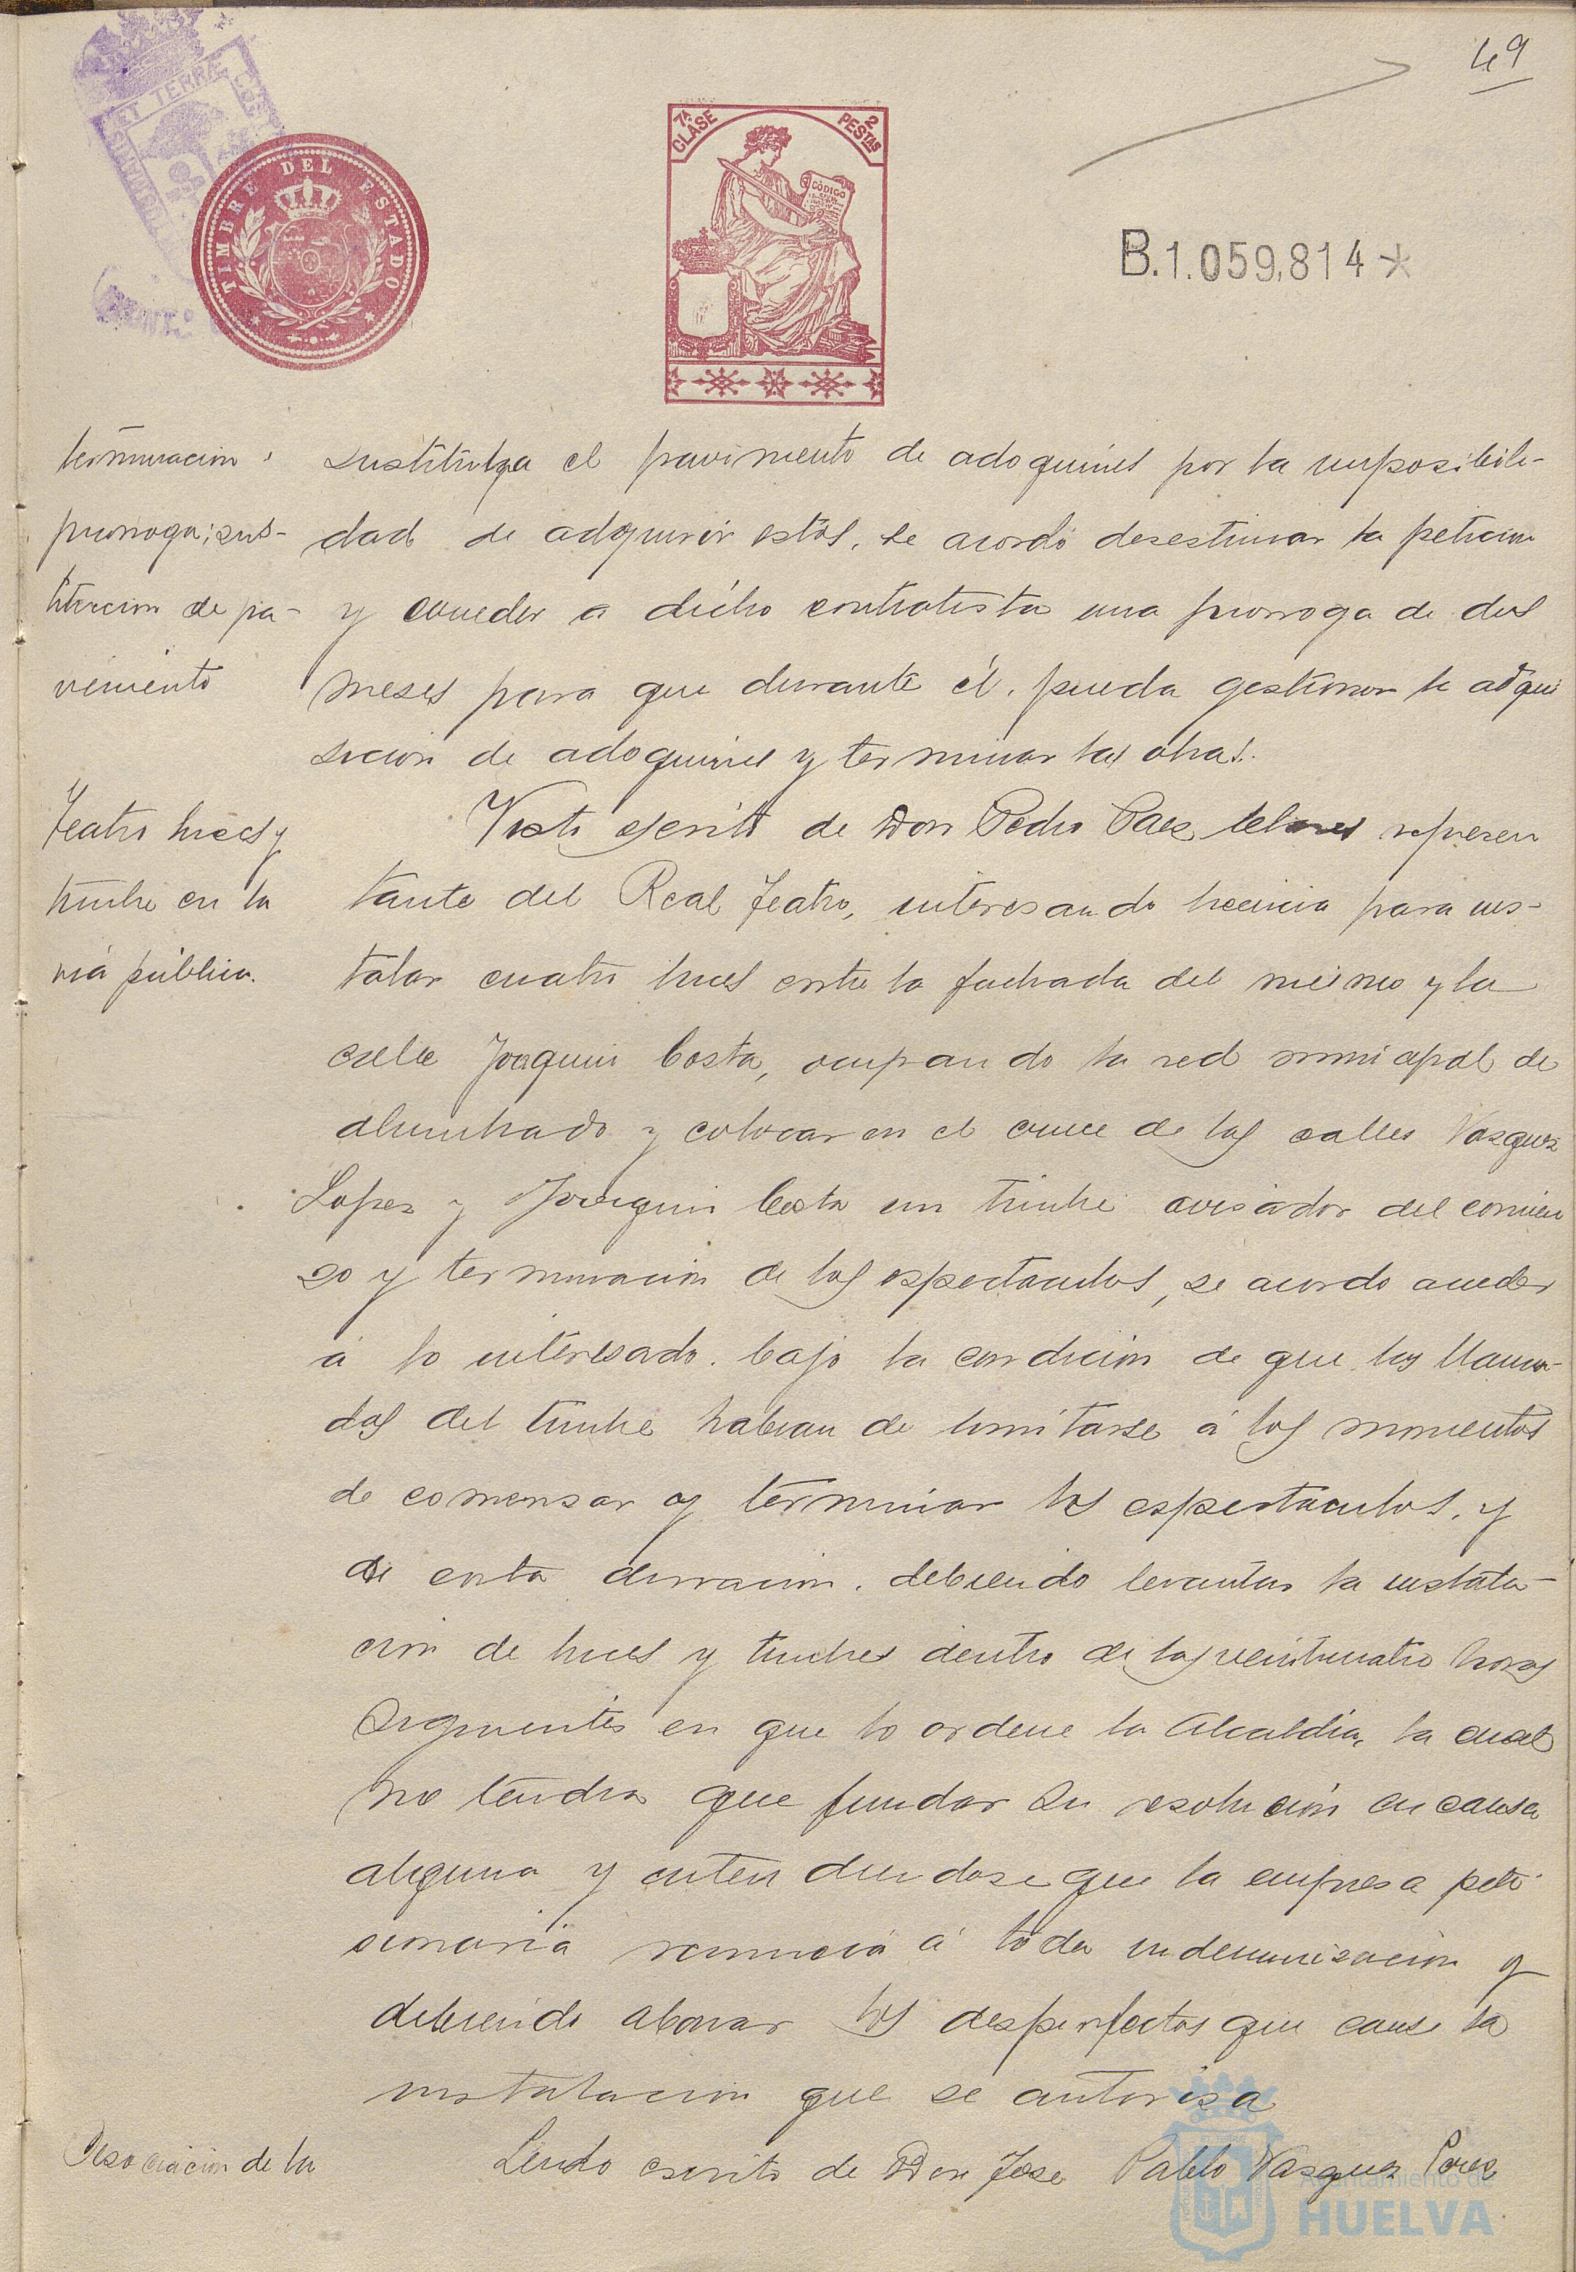 49
7ª CLASE
2 PESTAS
CÓDIGO
TIMBRE DEL ESTADO
ET TERRÆ
B.1.059.814*
terminacion
prorroga; sus-
titucion de pa-
vimento
sustituya el pavimento de adoquines por la imposibili-
dad de adquirir estos, se acordó desestimar la peticion
y conceder a dicho contratista una prorroga de dos
meses para que durante él, pueda gestionar la adqui
sicion de adoquines y terminar las obras.
Teatro luces y
timbre en la
via pública.
Visto escrito de Don Pedro Paez represen
tante del Real Teatro, interesando licencia para ins-
talar cuatro luces entre la fachada del mismo y la
calle Joaquin Costa, ocupando la red municipal de
alumbrado y colocar en el cruce de las calles Vazquez
Lopez y Joaquin Costa un timbre avisador del comien
zo y terminacion de los espectaculos, se acordo acceder
á lo interesado bajo la condicion de que las llama-
das del timbre habian de limitarse á los momentos
de comenzar y terminar los espectaculos, y
de corta duracion, debiendo levantar la instala-
cion de luces y timbres dentro de las veinticuatro horas
siguientes en que lo ordene la Alcaldia, la cual
no tendra que fundar su resolucion en causa
alguna y entendiendose que la empresa peti
cionaria renuncia á toda indemnizacion y
debiendo abonar los desperfectos que cause la
instalacion que se autoriza
Asociacion de la
Leido escrito de Don Jose Pablo Vazquez Perez
Ayuntamiento de
HUELVA